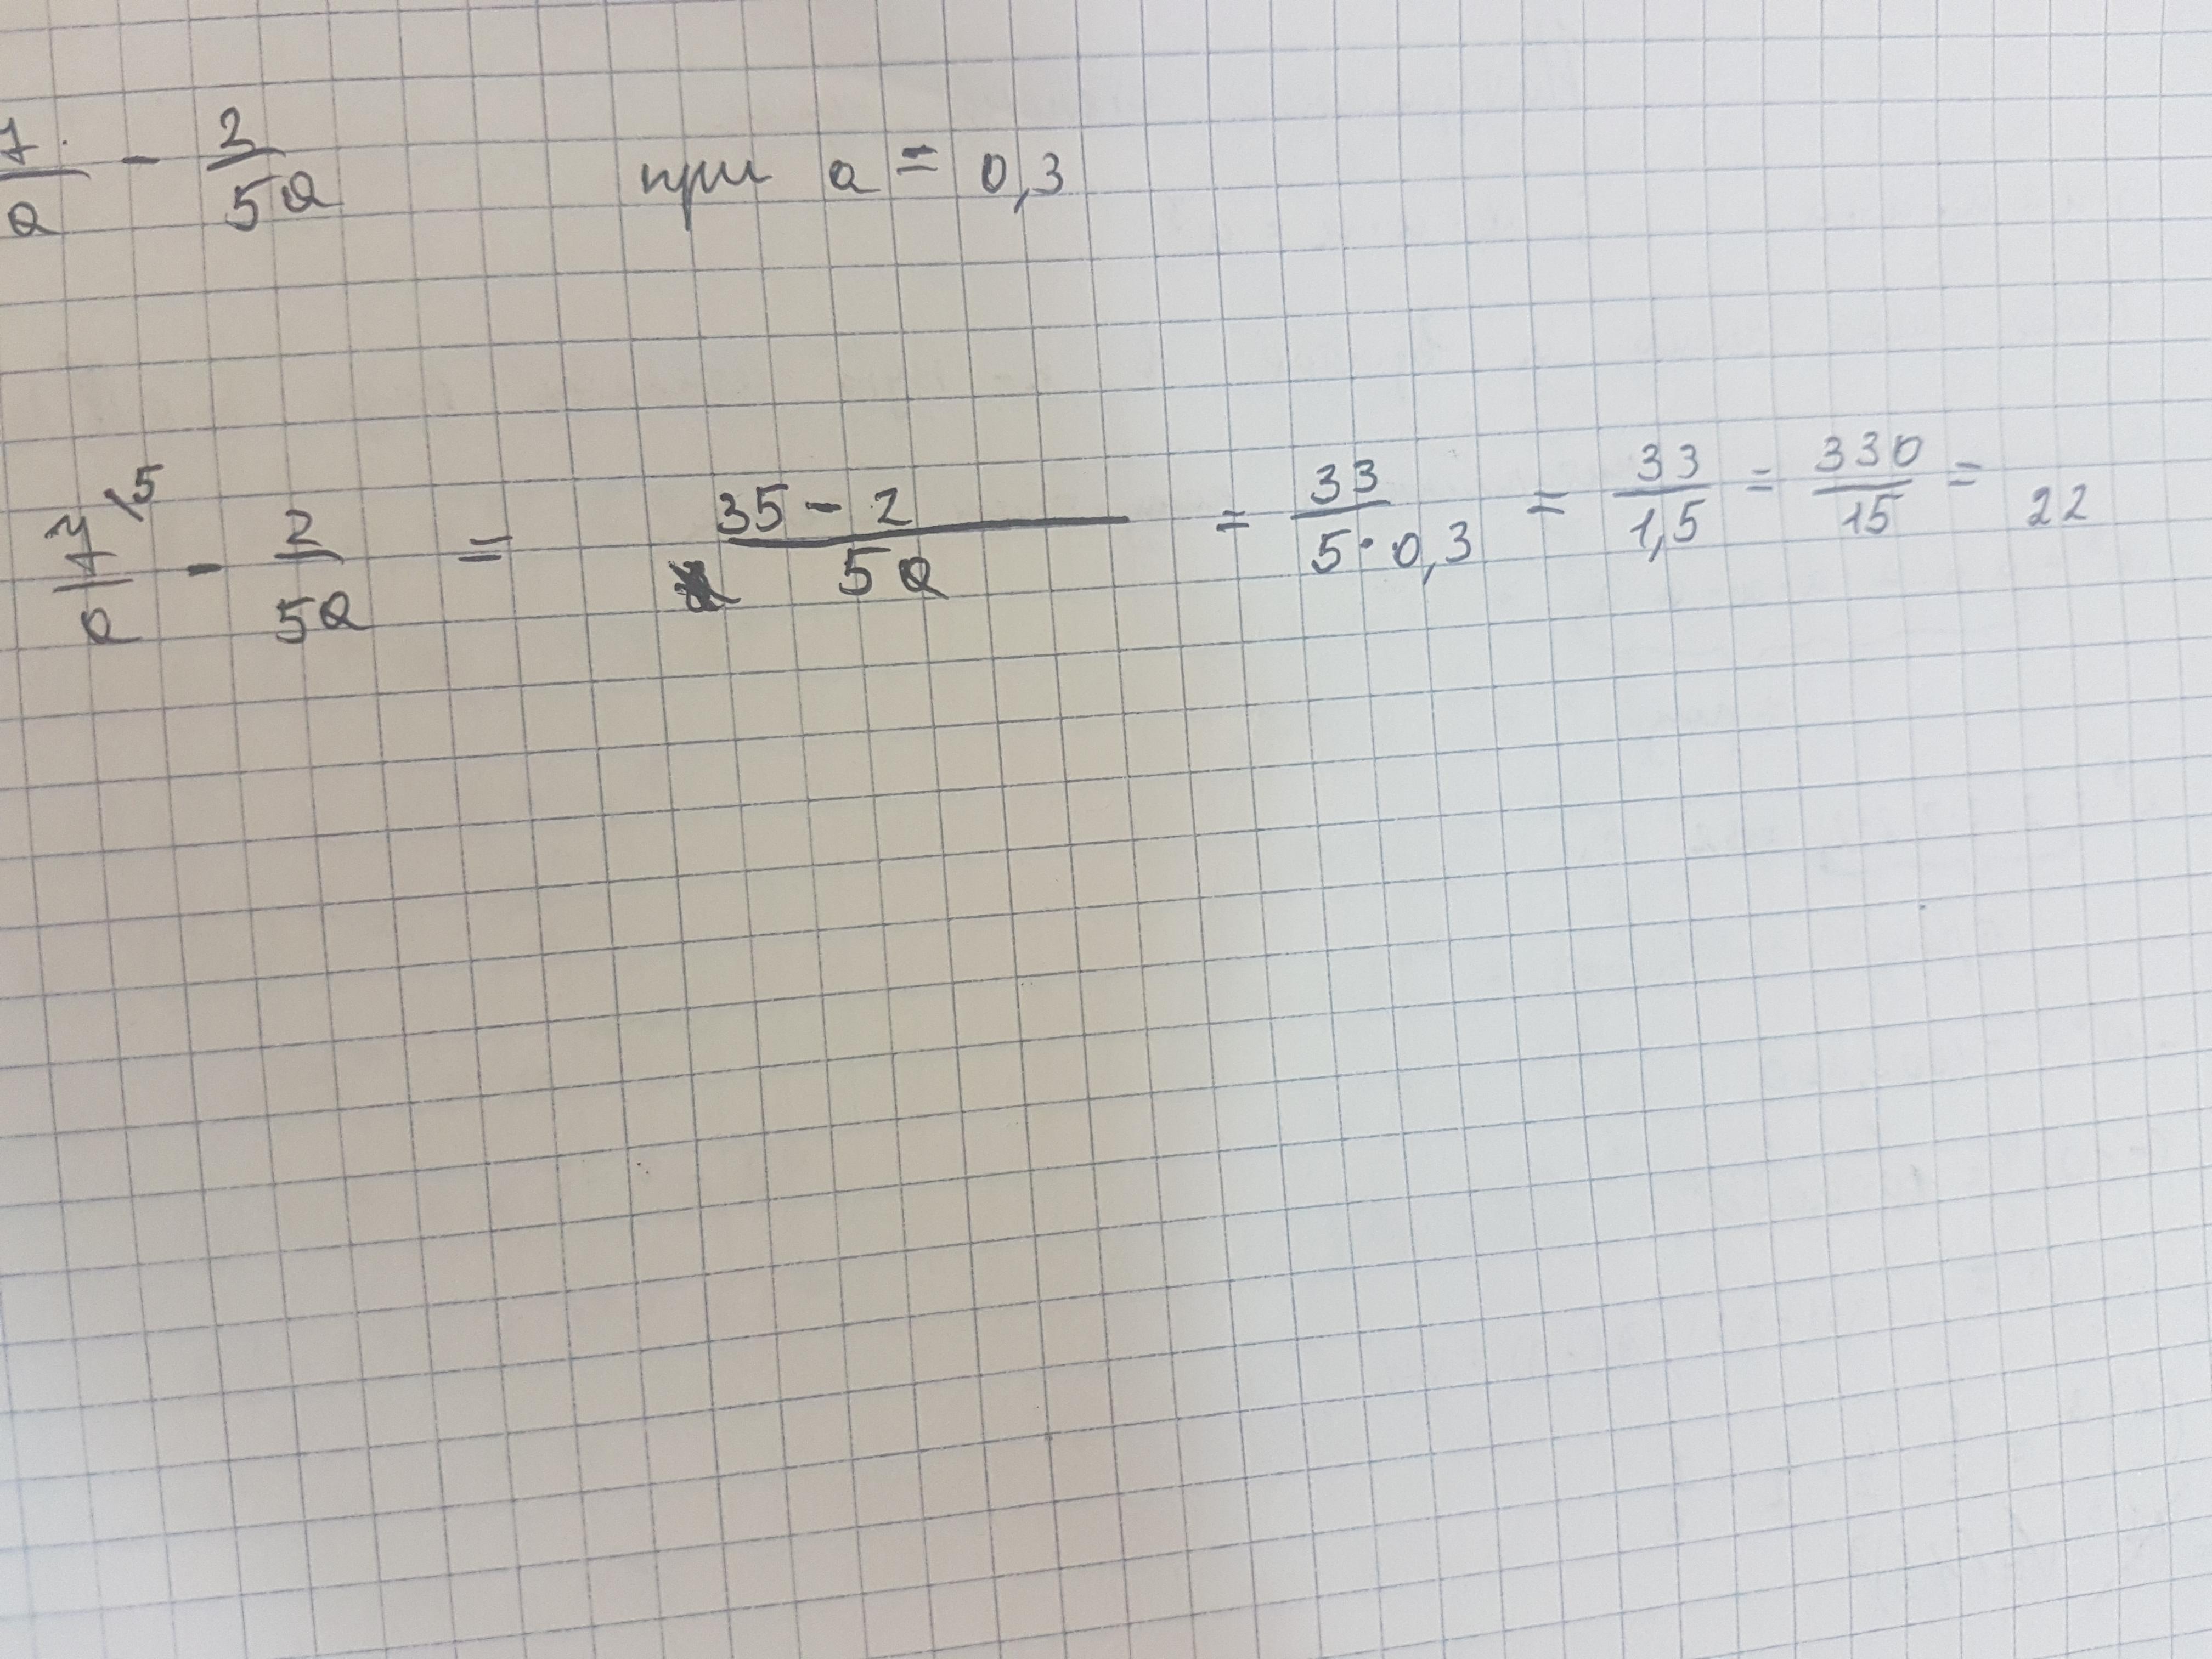 7/a - 2/5a при a = 0,3
7\5/a - 2/5a = 35 - 2/5a = 33/5·0,3 = 33/1,5 = 330/15 = 22